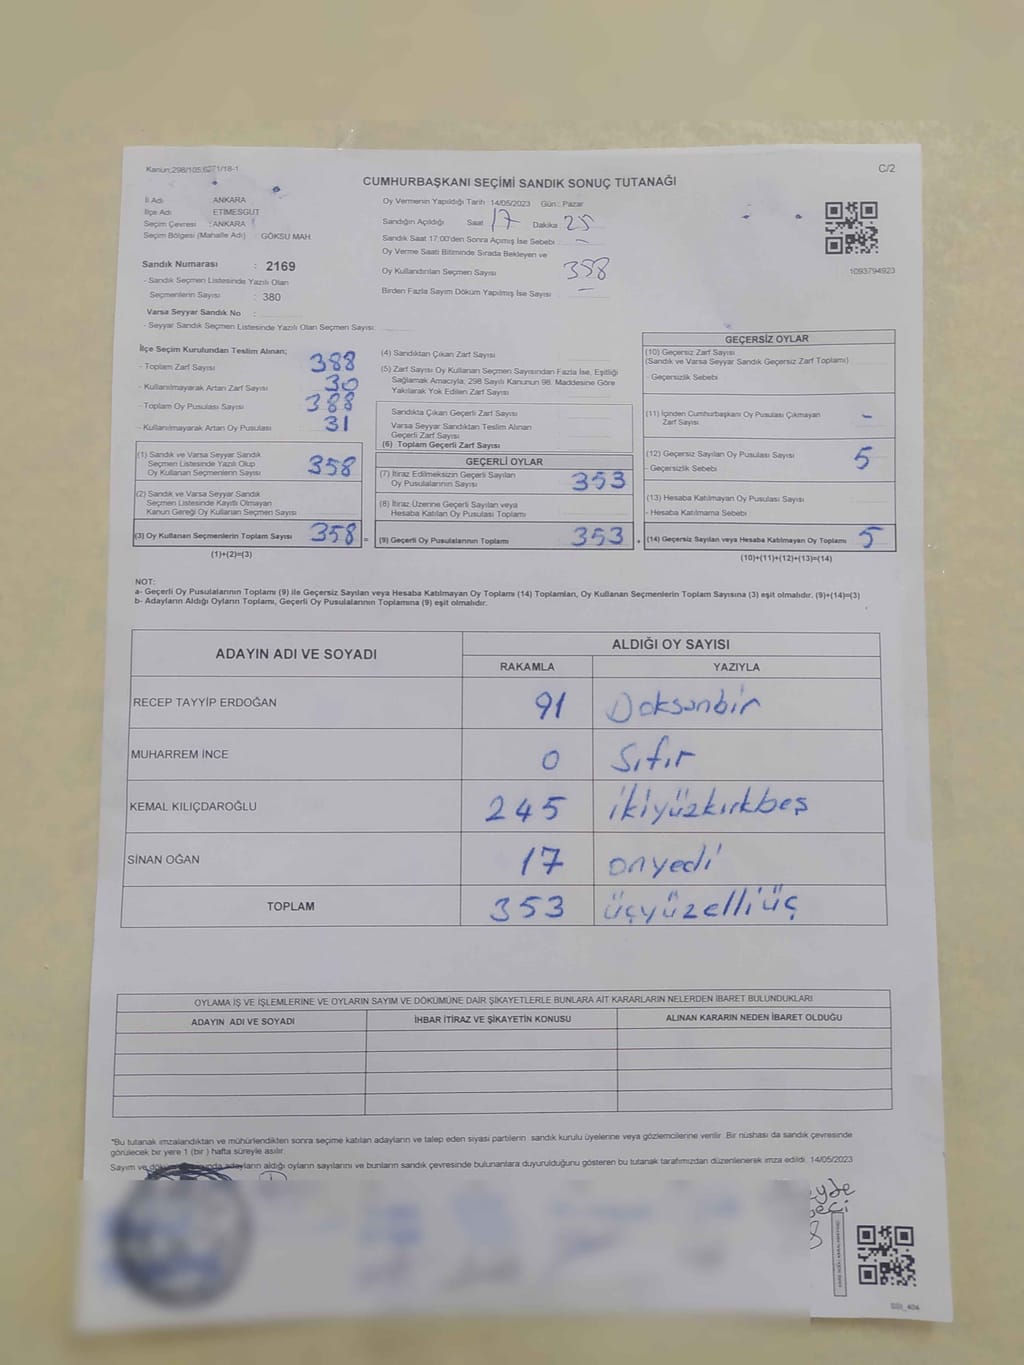 Kanun;298/105;6271/18-1
C/2
CUMHURBAŞKANI SEÇİMİ SANDIK SONUÇ TUTANAĞI
İl Adı ANKARA
İlçe Adı ETİMESGUT
Seçim Çevresi : ANKARA
Seçim Bölgesi (Mahalle Adı) : GÖKSU MAH.
Sandık Numarası : 2169
- Sandık Seçmen Listesinde Yazılı Olan
Seçmenlerin Sayısı : 380
Varsa Seyyar Sandık No :
- Seyyar Sandık Seçmen Listesinde Yazılı Olan Seçmen Sayısı:
Oy Vermenin Yapıldığı Tarih 14/05/2023 Gün : Pazar
Sandığın Açıldığı Saat 17 Dakika 25
Sandık Saat 17:00'den Sonra Açımış İse Sebebi : -
Oy Verme Saati Bitiminde Sırada Bekleyen ve
Oy Kullandırılan Seçmen Sayısı 358
Birden Fazla Sayım Döküm Yapılmış İse Sayısı -
1093794923
İlçe Seçim Kurulundan Teslim Alınan;
- Toplam Zarf Sayısı 388
- Kullanılmayarak Artan Zarf Sayısı 30
- Toplam Oy Pusulası Sayısı 388
- Kullanılmayarak Artan Oy Pusulası 31
(1) Sandık ve Varsa Seyyar Sandık
Seçmen Listesinde Yazılı Olup
Oy Kullanan Seçmenlerin Sayısı 358
(2) Sandık ve Varsa Seyyar Sandık
Seçmen Listesinde Kayıtlı Olmayan
Kanun Gereği Oy Kullanan Seçmen Sayısı
(3) Oy Kullanan Seçmenlerin Toplam Sayısı 358 =
(1)+(2)=(3)
(4) Sandıktan Çıkan Zarf Sayısı
(5) Zarf Sayısı Oy Kullanan Seçmen Sayısından Fazla İse, Eşitliği
Sağlamak Amacıyla; 298 Sayılı Kanunun 98. Maddesine Göre
Yakılarak Yok Edilen Zarf Sayısı
Sandıkta Çıkan Geçerli Zarf Sayısı
Varsa Seyyar Sandıktan Teslim Alınan
Geçerli Zarf Sayısı
(6) Toplam Geçerli Zarf Sayısı
GEÇERLİ OYLAR
(7) İtiraz Edilmeksizin Geçerli Sayılan
Oy Pusulalarının Sayısı 353
(8) İtiraz Üzerine Geçerli Sayılan veya
Hesaba Katılan Oy Pusulası Toplamı
(9) Geçerli Oy Pusulalarının Toplamı 353
GEÇERSİZ OYLAR
(10) Geçersiz Zarf Sayısı
(Sandık ve Varsa Seyyar Sandık Geçersiz Zarf Toplamı)
- Geçersizlik Sebebi
(11) İçinden Cumhurbaşkanı Oy Pusulası Çıkmayan
Zarf Sayısı -
(12) Geçersiz Sayılan Oy Pusulası Sayısı 5
- Geçersizlik Sebebi
(13) Hesaba Katılmayan Oy Pusulası Sayısı
- Hesaba Katılmama Sebebi
(14) Geçersiz Sayılan veya Hesaba Katılmayan Oy Toplamı 5
(10)+(11)+(12)+(13)=(14)
NOT:
a- Geçerli Oy Pusulalarının Toplamı (9) ile Geçersiz Sayılan veya Hesaba Katılmayan Oy Toplamı (14) Toplamları, Oy Kullanan Seçmenlerin Toplam Sayısına (3) eşit olmalıdır. (9)+(14)=(3)
b- Adayların Aldığı Oyların Toplamı, Geçerli Oy Pusulalarının Toplamına (9) eşit olmalıdır.
ADAYIN ADI VE SOYADI
ALDIĞI OY SAYISI
RAKAMLA YAZIYLA
RECEP TAYYİP ERDOĞAN 91 Doksanbir
MUHARREM İNCE 0 Sıfır
KEMAL KILIÇDAROĞLU 245 ikiyüzkırkbeş
SİNAN OĞAN 17 onyedi
TOPLAM 353 üçyüzelliüç
OYLAMA İŞ VE İŞLEMLERİNE VE OYLARIN SAYIM VE DÖKÜMÜNE DAİR ŞİKAYETLERLE BUNLARA AİT KARARLARIN NELERDEN İBARET BULUNDUKLARI
ADAYIN ADI VE SOYADI İHBAR İTİRAZ VE ŞİKAYETİN KONUSU ALINAN KARARIN NEDEN İBARET OLDUĞU
*Bu tutanak imzalandıktan ve mühürlendikten sonra seçime katılan adayların ve talep eden siyasi partilerin sandık kurulu üyelerine veya gözlemcilerine verilir. Bir nüshası da sandık çevresinde
görülecek bir yere 1 (bir) hafta süreyle asılır.
Sayım ve adayların aldığı oyların sayılarını ve bunların sandık çevresinde bulunanlara duyurulduğunu gösteren bu tutanak tarafımızdan düzenlenerek imza edildi. 14/05/2023